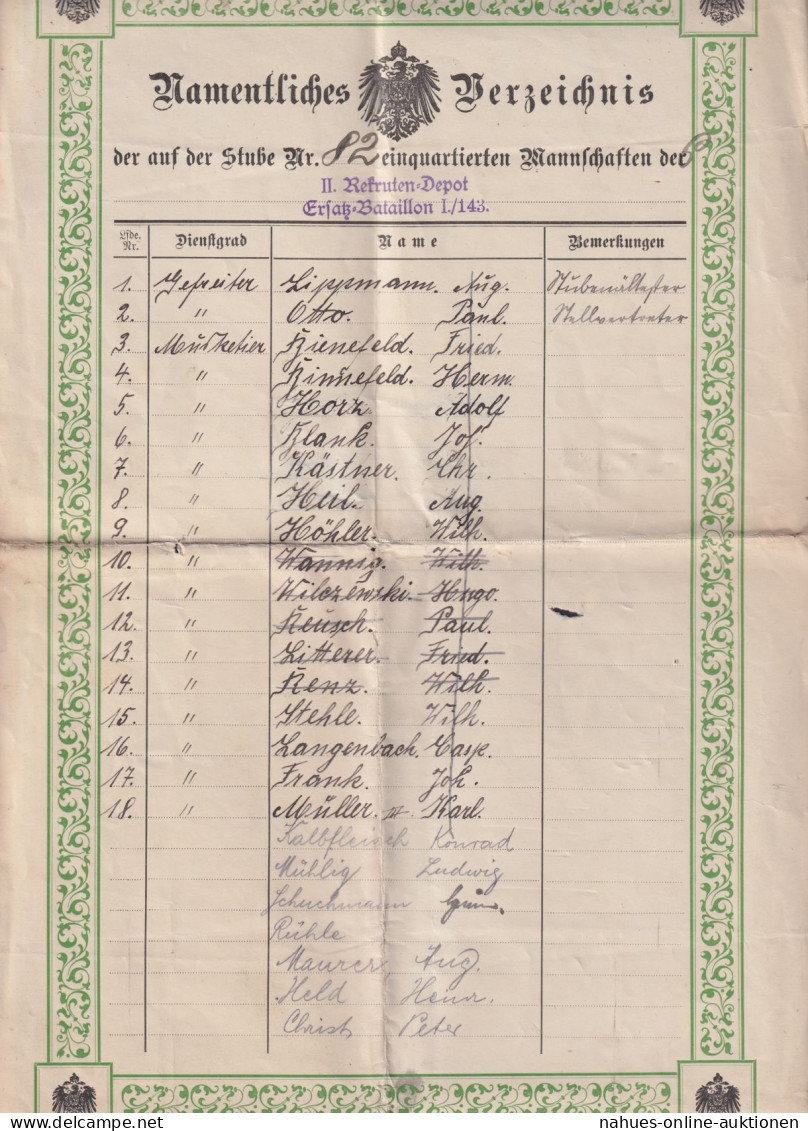 Namentliches Verzeichnis
der auf der Stube Nr. 82 einquartierten Mannschaften der
II. Rekruten-Depot
Ersatz-Bataillon I./143.
Lfde. Nr. Dienstgrad Name Bemerkungen
1. Gefreiter Lippmann. Aug. Stubenältester
2. " Otto. Paul. Stellvertreter
3. Musketier Bienefeld. Fried.
4. " Binnefeld. Herm.
5. " Horz Adolf
6. " Blank. Joh.
7. " Kästner. Chr.
8. " Heil. Aug.
9. " Höhler. Wilh.
10. " Wannig. Wilh.
11. " Wilczewski. Hugo.
12. " Reusch. Paul.
13. " Litterer. Fried.
14. " Renz. Wilh.
15. " Stehle. Wilh.
16. " Langenbach. Casp.
17. " Frank. Joh.
18. " Müller. III Karl.
Kalbfleisch Konrad
Mühlig Ludwig
Schuchmann
Rühle
Maurer Aug.
Held Heinr.
Christ Peter
nahues-online-auktionen